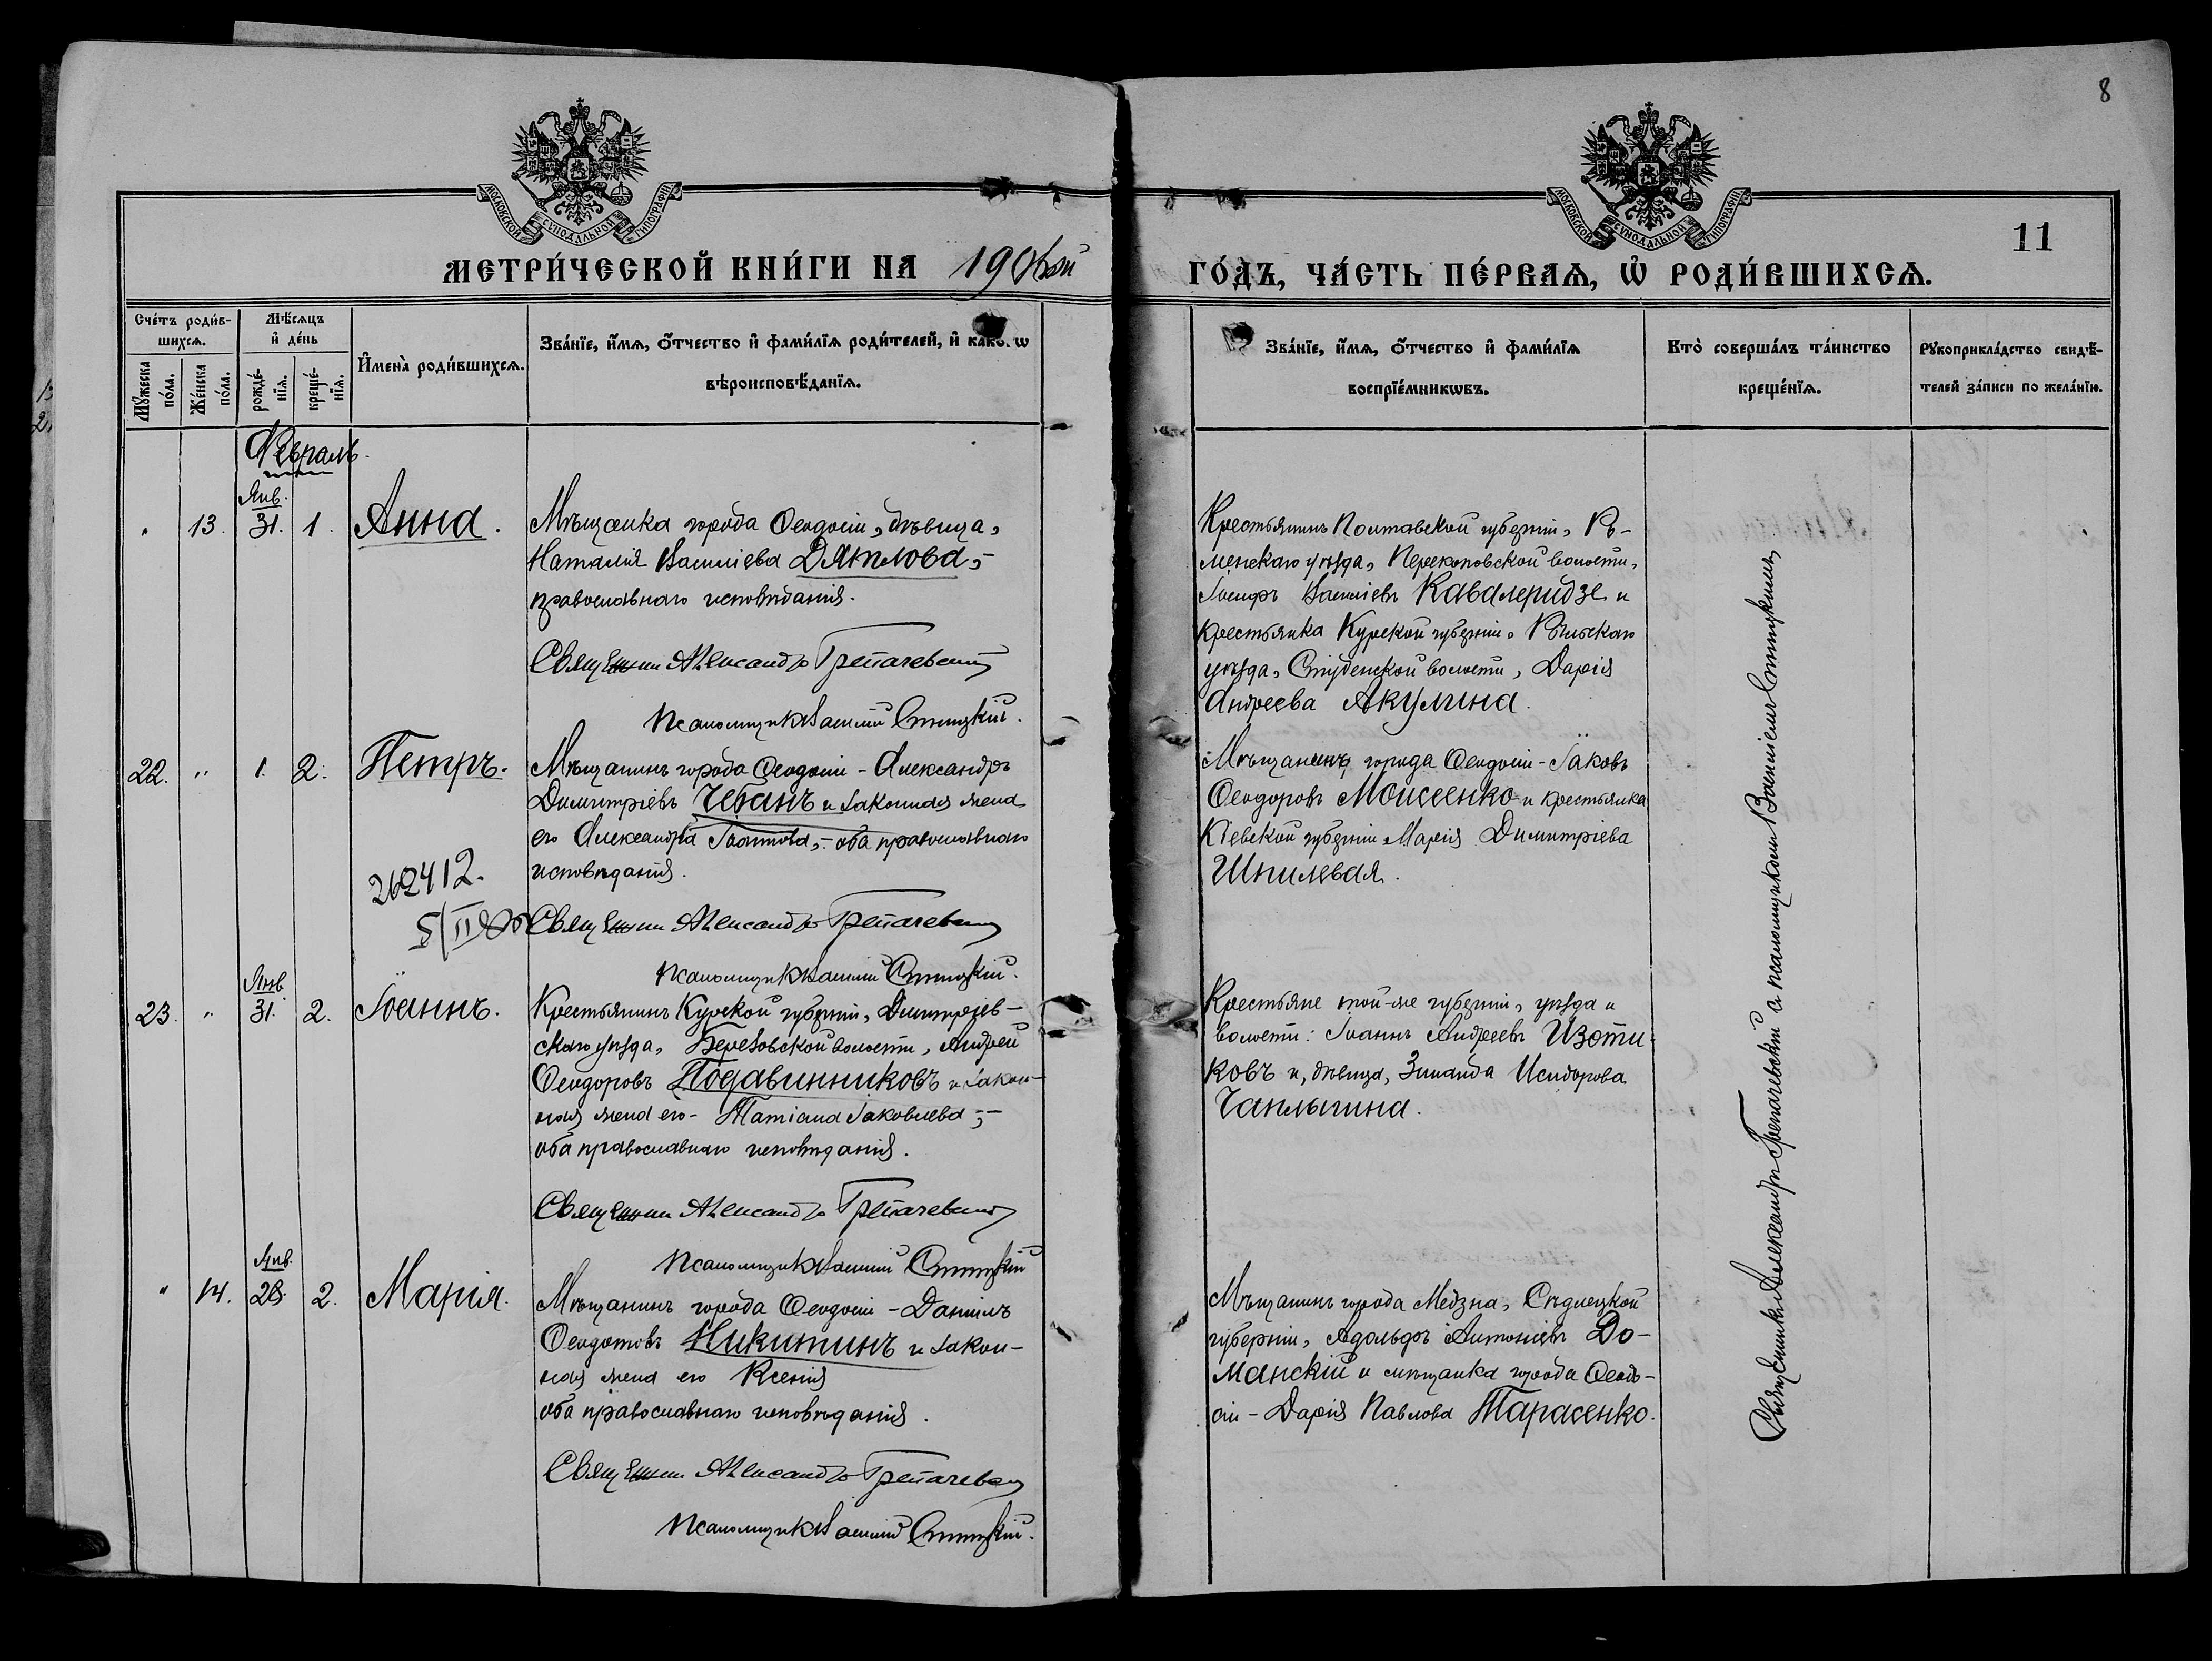 8
МОСКОВСКОЙ СУНОДАЛЬНОЙ ТИПОГРАФІИ
МОСКОВСКОЙ СУНОДАЛЬНОЙ ТИПОГРАФІИ
11
МЕТРИ́ЧЕСКОЙ КНИ́ГИ НА
ГО́ДЪ, ЧА́СТЬ ПЕ́РВАѦ, Ѡ҆ РОДИ́ВШИХСѦ.
Сче́тъ роди́в-
шихсѧ.
Мꙋ́жеска по́ла.
Же́нска по́ла.
Мѣ́сѧцъ и҆ де́нь
рожде́-нїѧ.
креще́-нїѧ.
И҆мена̀ роди́вшихсѧ.
Зва́нїе, и҆́мѧ, ѻ҆́тчество и҆ фами́лїѧ роди́телей, и҆ како́гѡ
вѣроисповѣ́данїѧ.
Зва́нїе, и҆́мѧ, ѻ҆́тчество и҆ фами́лїѧ
воспрїе́мникѡвъ.
Кто̀ соверша́лъ та́инство
креще́нїѧ.
Рꙋкоприкла́дство свидѣ́-
телей за́писи по жела́нїю.
Февраль.
" 13. Янв. 31. 1. Анна.
Мѣщанка города Ѳеодосіи, дѣвица,
Наталія Василіева Дятлова,-
православнаго исповѣданія.
Священник Александръ Трепачевскій
Псаломщикъ Василій Стицкій.
Крестьянинъ Полтавской губерніи, Ро-
менскаго уѣзда, Перекоповской волости,
Іосифъ Василіевъ Кавалеридзе и
крестьянка Курской губерніи, Рыльскаго
уѣзда, Студенской волости, Дарія
Андреева Акулина.
22. " 1. 2. Петръ.
Мѣщанинъ города Ѳеодосіи - Александръ
Димитріевъ Чебанъ и законная жена
его Александра Іоаннова,- оба православнаго
исповѣданія.
262412.
Священник Александръ Трепачевскій
Псаломщикъ Василій Стицкій.
Мѣщанинъ города Ѳеодосіи - Іаковъ
Ѳеодоровъ Моисеенко и крестьянка
Кіевской губерніи Марія Димитріева
Шпилевая.
23. " Янв. 31. 2. Іоаннъ.
Крестьянинъ Курской губерніи, Димитріев-
скаго уѣзда, Березовской волости, Андрей
Ѳеодоровъ Подавинниковъ и закон-
ная жена его - Татіана Іаковлева;-
оба православнаго исповѣданія.
Священник Александръ Трепачевскій
Псаломщикъ Василій Стицкій
Крестьяне той-же губерніи, уѣзда и
волости: Іоаннъ Андреевъ Изоти-
ковъ и, дѣвица, Зинаида Исидорова
Чаплыгина.
" 14. Янв. 28. 2. Марія.
Мѣщанинъ города Ѳеодосіи - Даніилъ
Ѳеодотовъ Никитинъ и закон-
ная жена его Ксенія
оба православнаго исповѣданія.
Священник Александръ Трепачевскій
Псаломщикъ Василій Стицкій.
Мѣщанинъ города Мѣдзна, Сѣдлецкой
губерніи, Адольфъ Антоніевъ До-
манскій и мѣщанка города Ѳеодо-
сіи - Дарія Павлова Тарасенко.
Священникъ Александръ Трепачевскій съ псаломщикомъ Василіемъ Стицкимъ